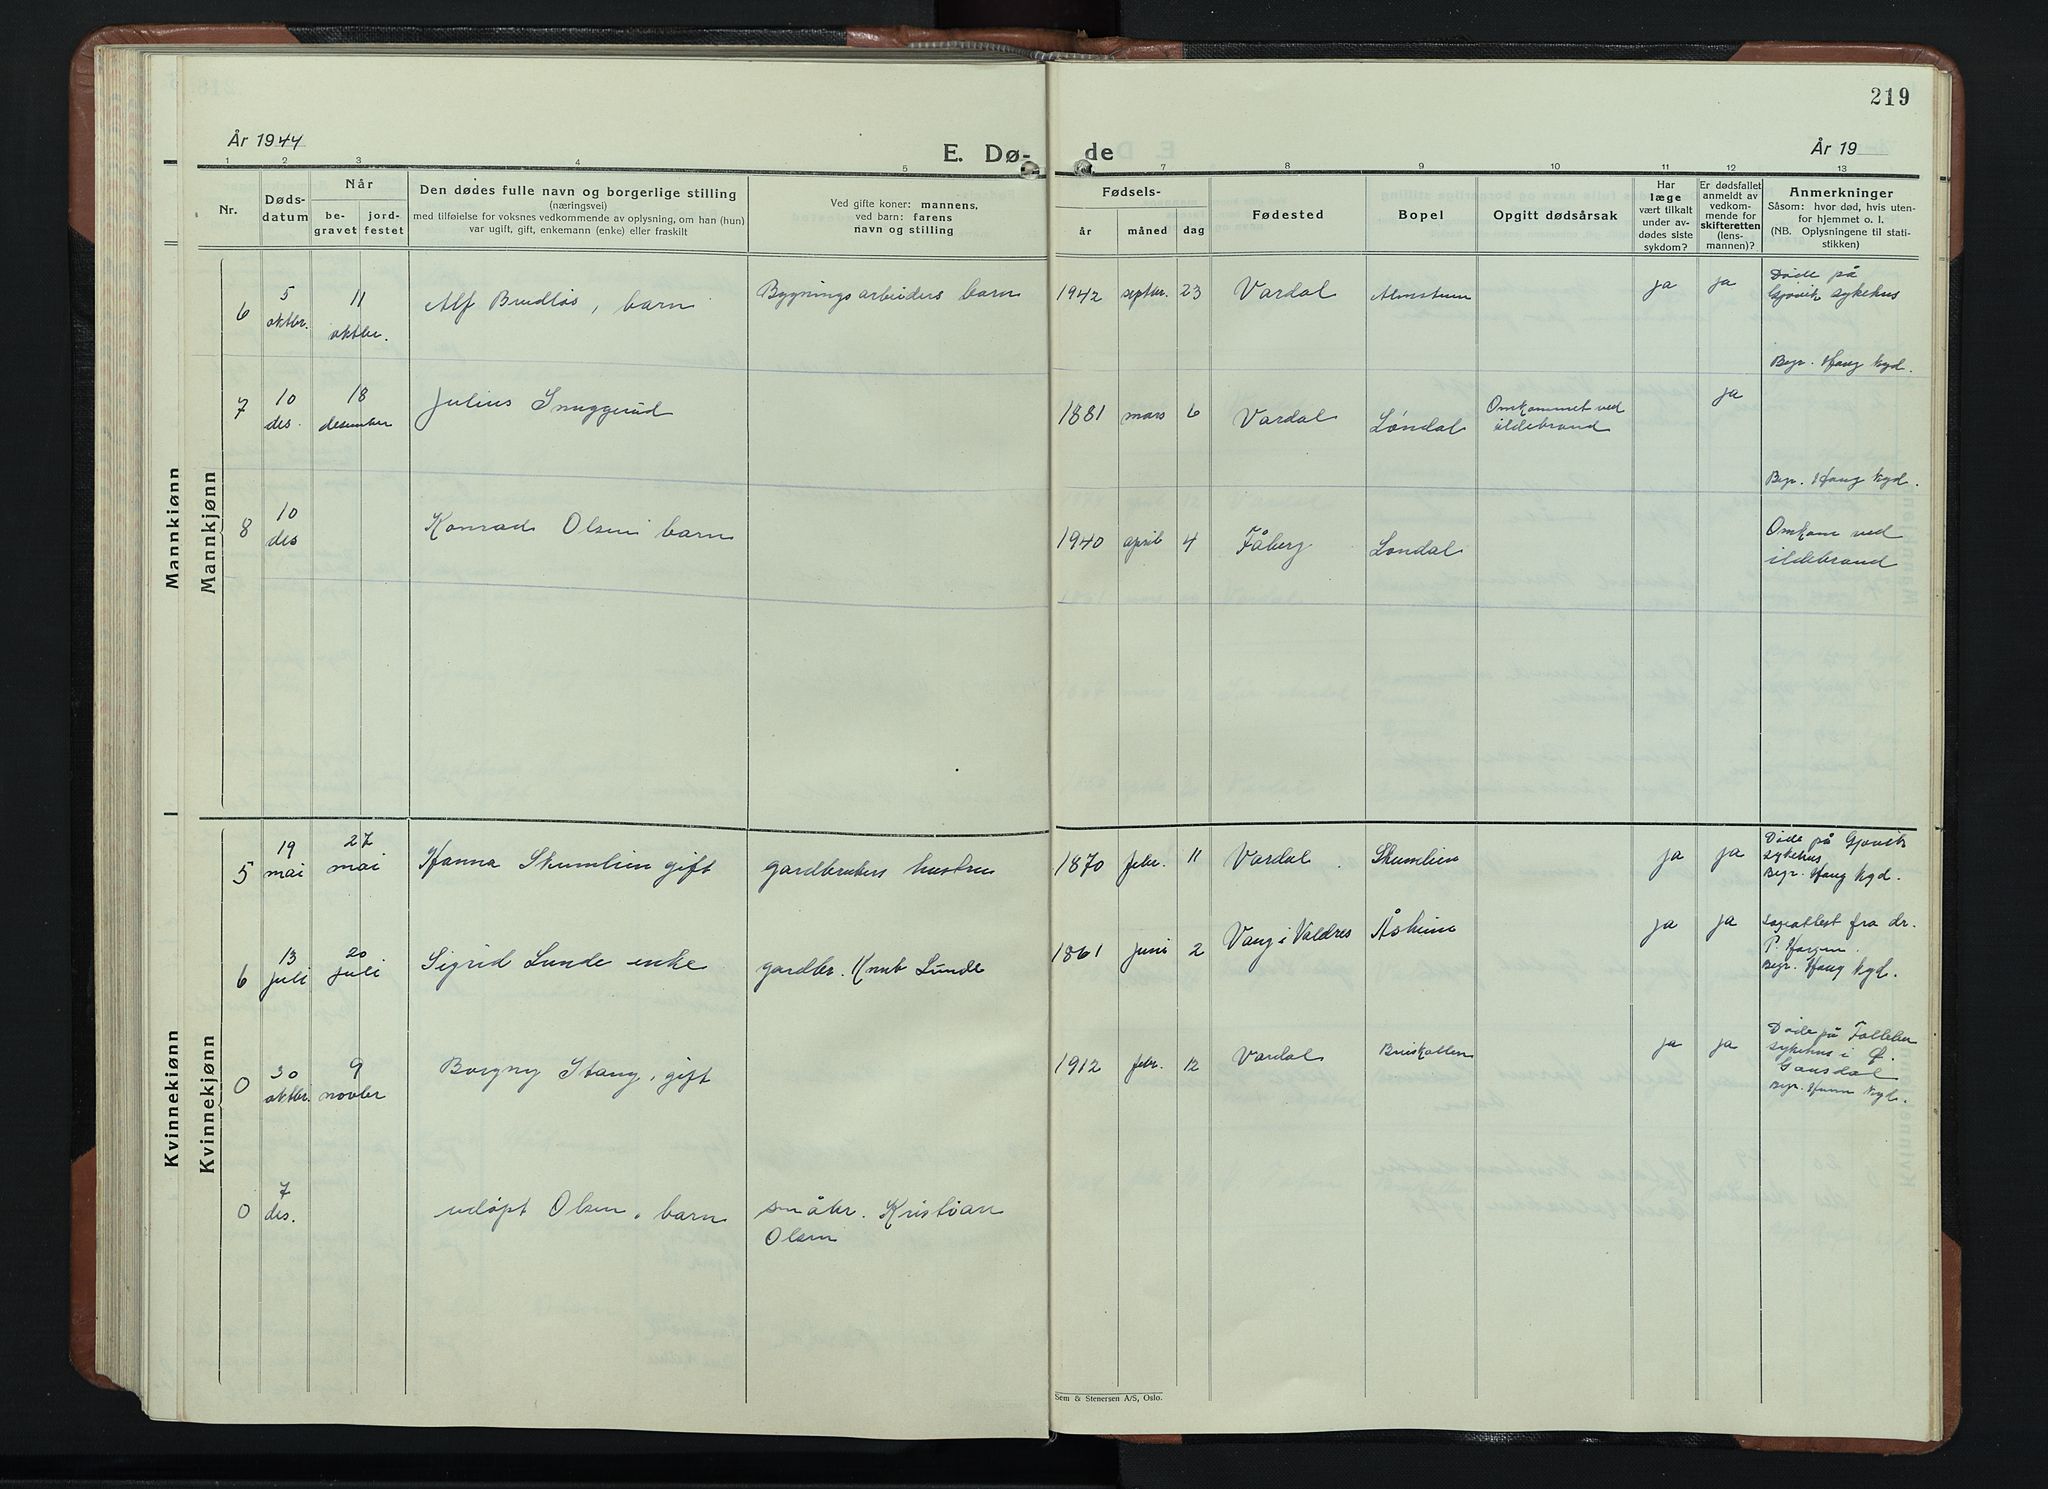 219
År 1944
E. Dø-
de
År 19
1 2 3 4 5 7 8 9 10 11 12 13
Nr.
Døds-
datum
Når
be-
gravet
jord-
festet
Den dødes fulle navn og borgerlige stilling
(næringsvei)
med tilføielse for voksnes vedkommende av oplysning, om han (hun)
var ugift, gift, enkemann (enke) eller fraskilt
Ved gifte koner: mannens,
ved barn: farens
navn og stilling
Fødsels-
år
måned
dag
Fødested
Bopel
Opgitt dødsårsak
Har
læge
vært tilkalt
under av-
dødes siste
sykdom?
Er dødsfallet
anmeldt av
vedkom-
mende for
skifteretten
(lens-
mannen)?
Anmerkninger
Såsom: hvor død, hvis uten-
for hjemmet o. l.
(NB. Oplysningene til stati-
stikken)
Mannkjønn
Mannkjønn
6 5 oktbr. 11 oktbr. Alf Bredløs, barn Bygningsarbeiders barn 1942 septbr. 23 Vardal ja ja Døde på
Gjøvik sykehus
Begr. Haug kgd.
7 10 des. 18 desember Julius Snuggerud 1881 mars 6 Vardal Løndal Omkommet ved ja
ildebrand
Begr. Haug kgd.
8 10 des Konrad Olsen barn 1940 april 4 Fåberg Løndal Omkom ved
ildebrand
Kvinnekjønn
Kvinnekjønn
5 19 mai 27 mai Hanna Skumlien gift gardbrukers hustru 1870 febr. 11 Vardal Skumlien ja ja Døde på Gjøvik
sykehus
Begr. Haug kgd.
6 13 juli 20 juli Sigrid Lunde enke gardbr. Knut Lunde 1861 juni 2 Vang i Valdres Åsheim ja ja fra dr.
Begr. Haug kgd.
0 30 oktbr. 9 novbr Borgny Stang, gift 1912 febr. 12 Vardal Bruskollen ja ja Døde på Follebu
sykehus i Ø.
Gausdal
Begr. kgd.
0 7 des. udøpt Olsen, barn småbr. Kristian
Olsen
Sem & Stenersen A/S, Oslo.